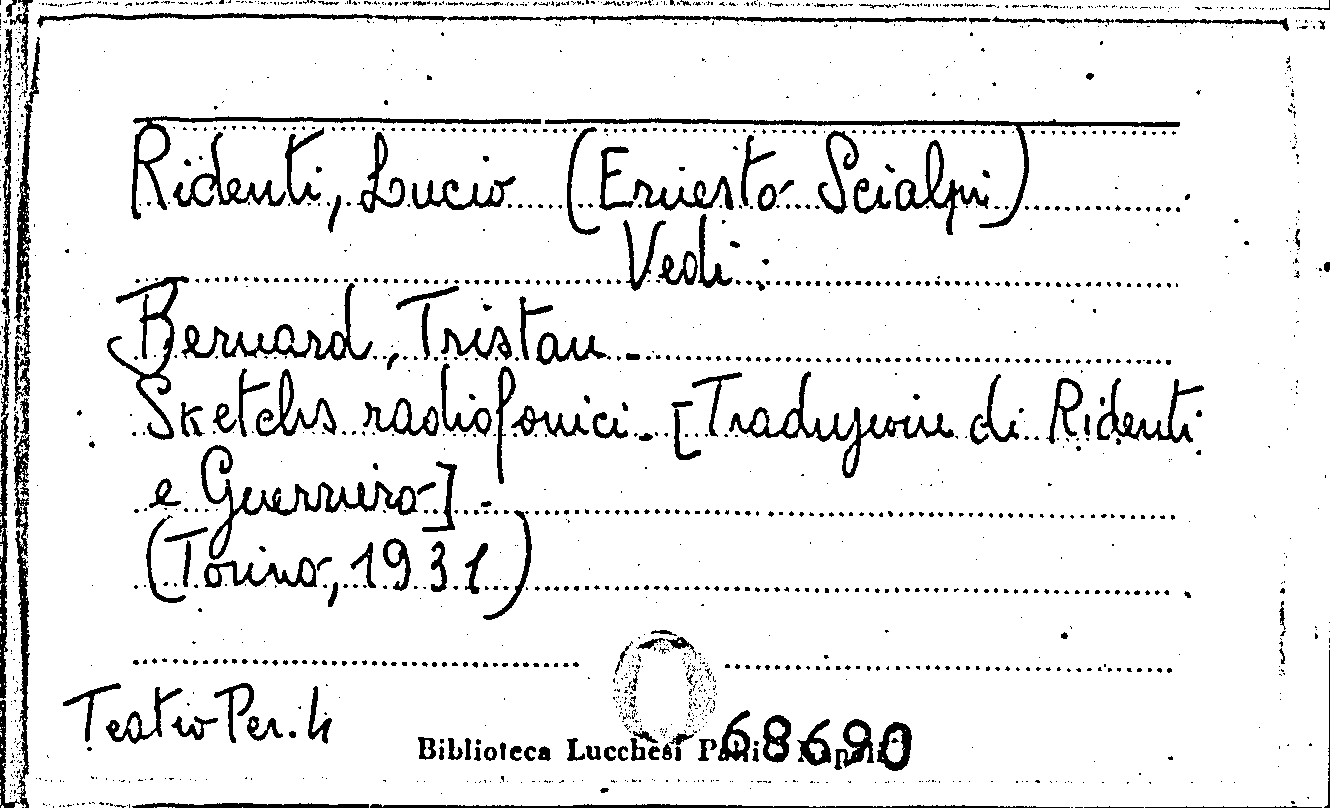 Ridenti, Lucio (Ernesto Scialpi)
Vedi:
Bernard, Tristan -
Sketchs radiofonici - [Traduzione di Ridenti
e Guerriero] -
(Torino, 1931)
Teatro Per. 4
Biblioteca Lucchesi Palli - Napoli
68690